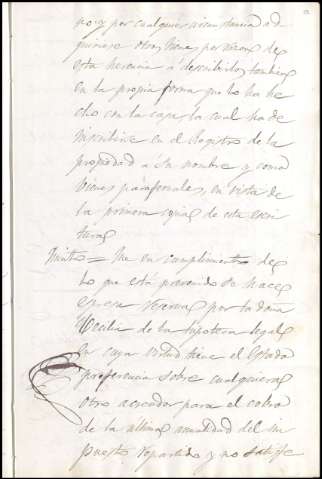 no y por cualquier circunstancia ad
quiriese otros bienes por razon de
esta herencia á describirlos tambien
en la propia forma que lo ha he
cho con la casa la cual ha de
inscribirse en el Registro de la
propiedad á su nombre y como
bienes parafernales, en vista de
la primera copia de esta escri
tura
Quinto = Que en cumplimiento de
lo que está prevenido se hace
espresa reserva por la doña
Cecilia de la hipoteca legal
en cuya virtud tiene el Estado
preferencia sobre cualquiera
otro acreedor para el cobro
de la ultima anualidad del im
puesto repartido y no satisfe